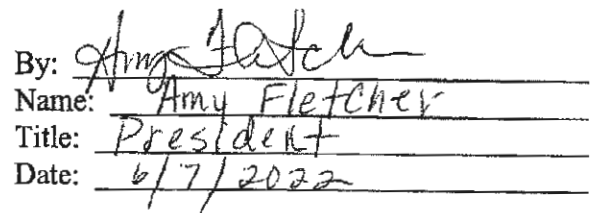 By: Amy Fletcher
Name: Amy Fletcher
Title: President
Date: 6/7/2022